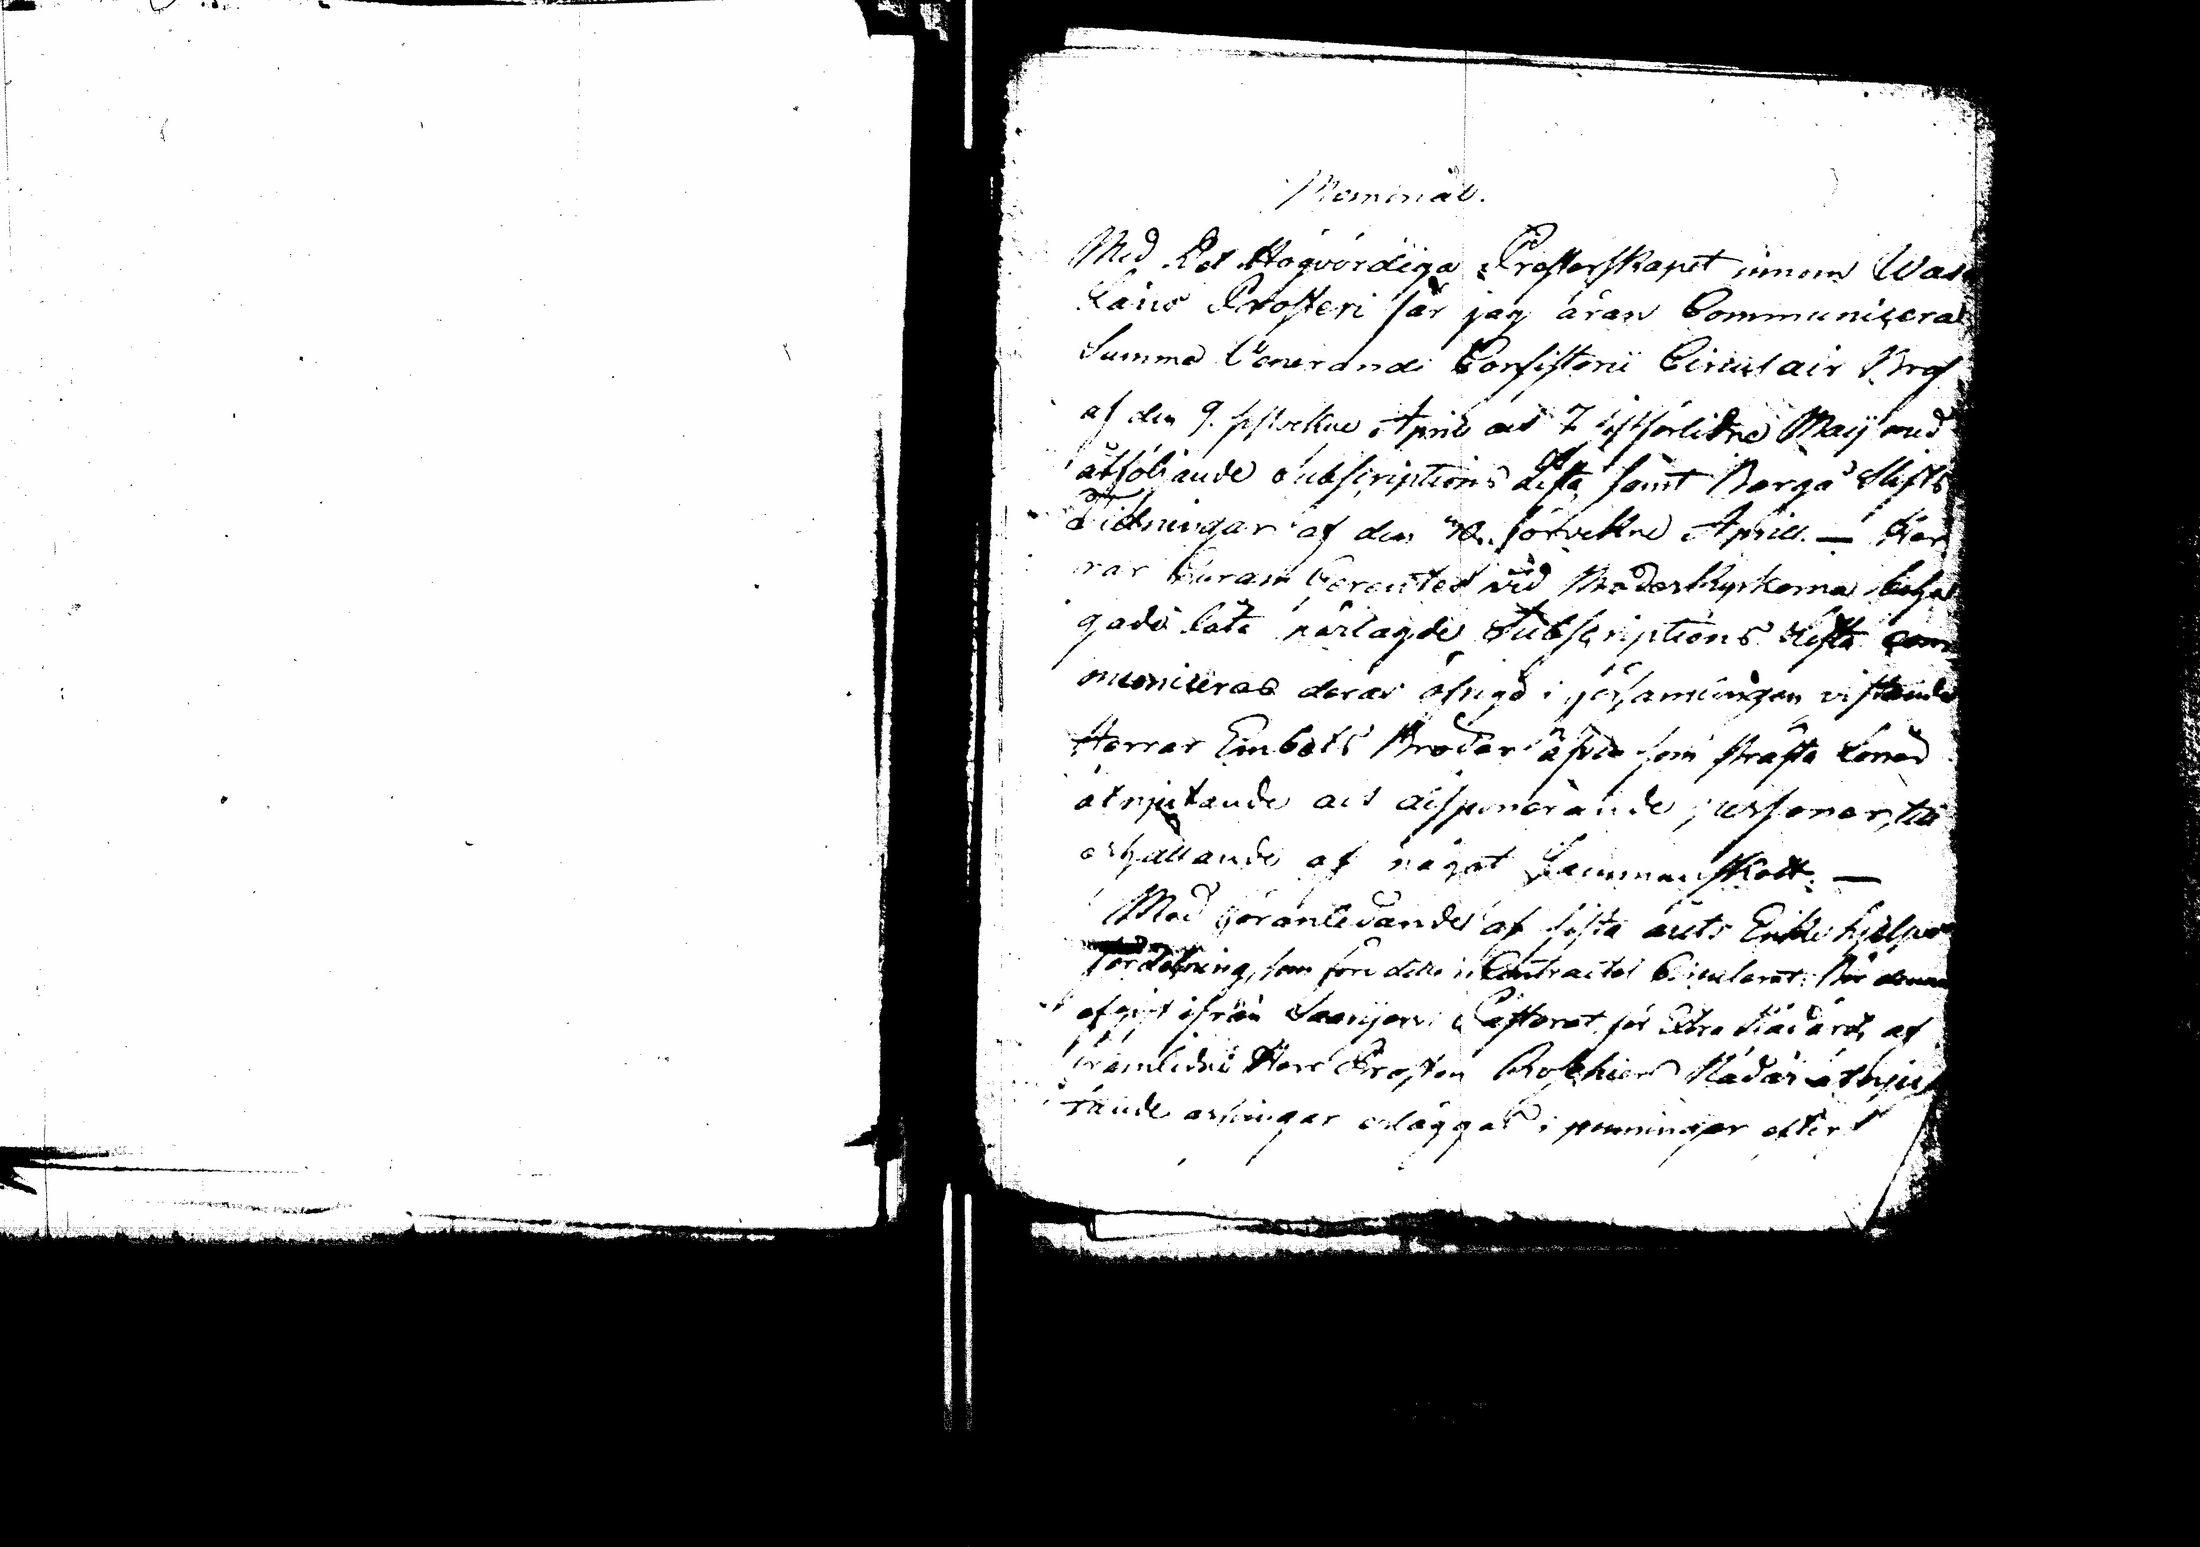 Memorial.
Med Det Högvördiga Presterskapet innom Wasa
Läns Prosteri får jag äran Communicera
Summe Venerandi Consistorii Circulair Bref
af den 9. sistvekne April och 7 sistförledne Maij med
åtföljande Subscriptions Lista samt Borgå Stifts
Tidningar af den förvekne April. — Her
rar Curam Gerentes vid Moderkyrkorna beha
gade låta närlagde Subscriptions Lista com
municeras deras öfrige i församlingen vistande
Herrar Embets Bröder äfven som lönen
åtnjutande och disponerande personer, till
erhållande af något Sammanskott. —
Med föranledande af sista årets Enke hjelps
fördelning, som föredetta i Contractet Circulerat, bör denna
afgift ifrån Saarijervi Pastorat för Extra Nådåret, af
framledne Herr Prosten Nådår åtnju
tande arfvingar erläggas i penningar efter